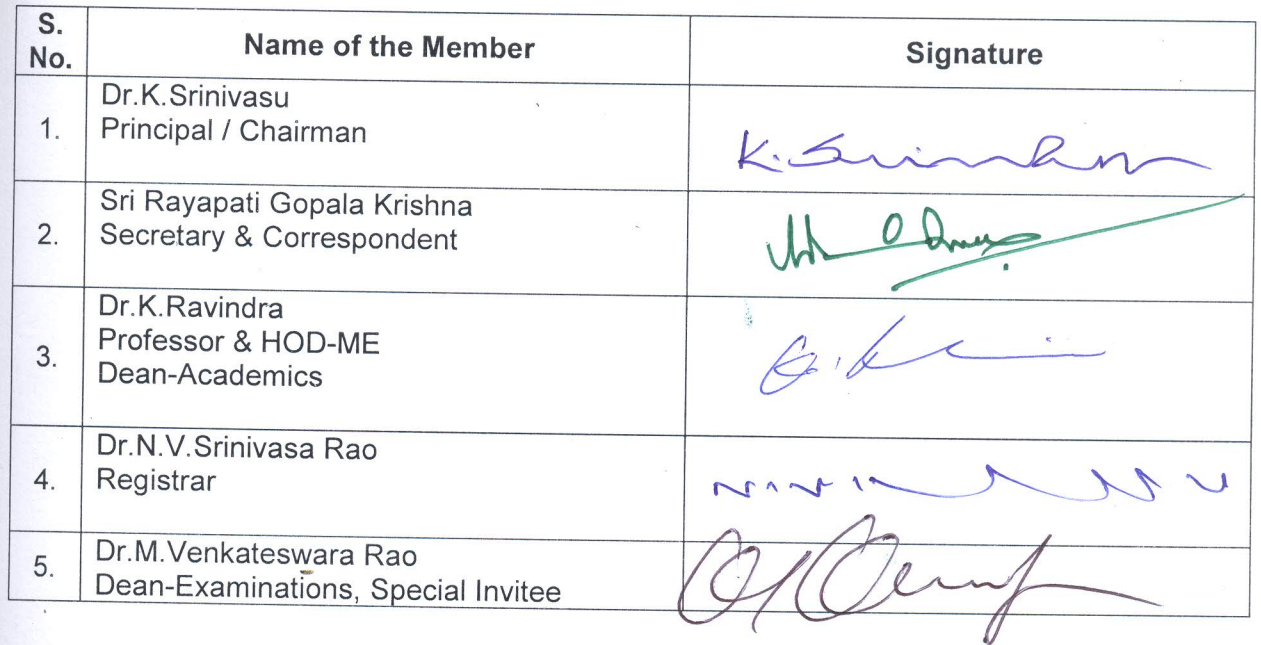 S. No.
Name of the Member
Signature
1.
Dr.K.Srinivasu
Principal / Chairman
K.
2.
Sri Rayapati Gopala Krishna
Secretary & Correspondent
3.
Dr.K.Ravindra
Professor & HOD-ME
Dean-Academics
4.
Dr.N.V.Srinivasa Rao
Registrar
5.
Dr.M.Venkateswara Rao
Dean-Examinations, Special Invitee